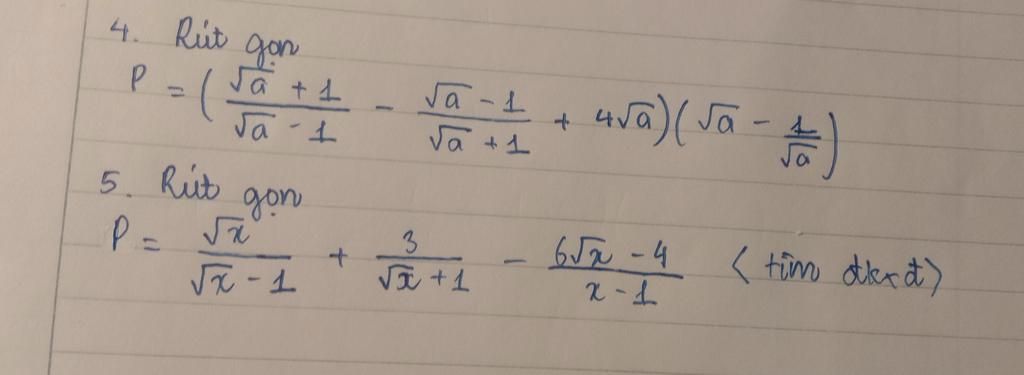 4. Rút gọn
P = ( \frac{\sqrt{a} + 1}{\sqrt{a} - 1} - \frac{\sqrt{a} - 1}{\sqrt{a} + 1} + 4\sqrt{a} ) ( \sqrt{a} - \frac{1}{\sqrt{a}} )
5. Rút gọn
P = \frac{\sqrt{x}}{\sqrt{x} - 1} + \frac{3}{\sqrt{x} + 1} - \frac{6\sqrt{x} - 4}{x - 1} ( tìm đkxđ )